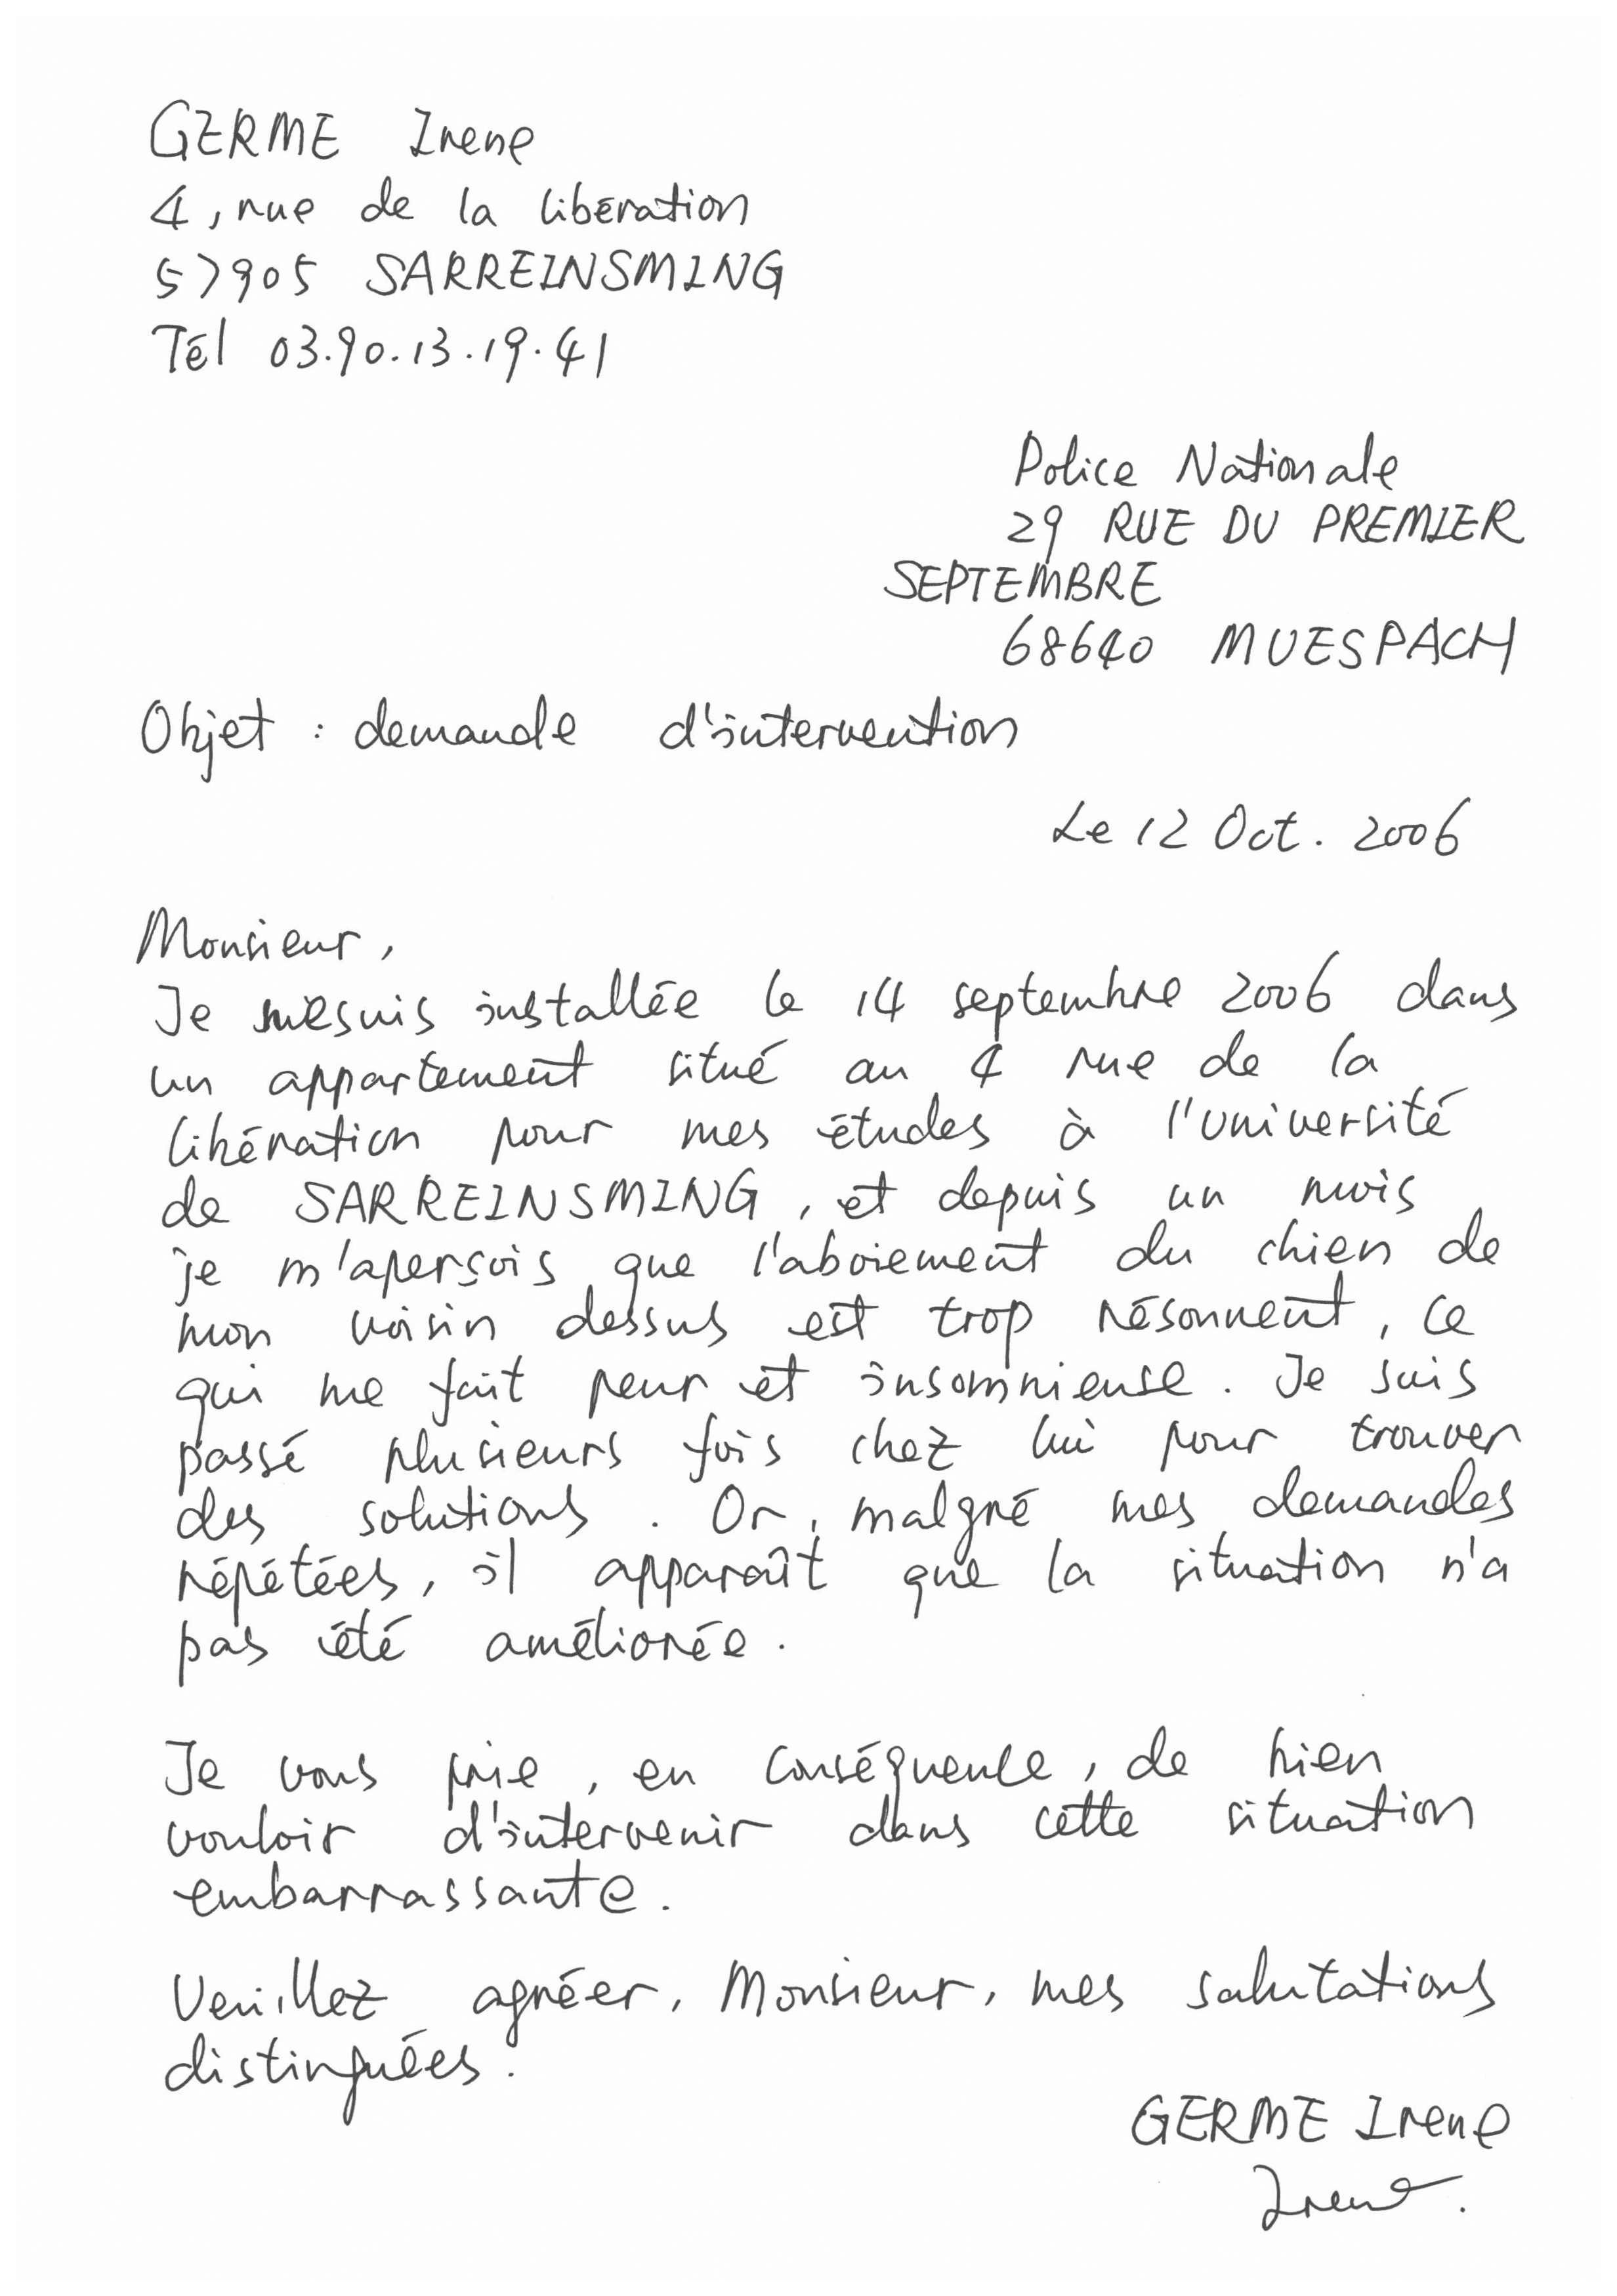 GERME Irene
4, rue de la libération
57905 SARREINSMING
Tél 03.90.13.19.41
Police Nationale
29 RUE DU PREMIER
SEPTEMBRE
68640 MUESPACH
Objet : demande d'intervention
Le 12 Oct. 2006
Monsieur,
Je me suis installée le 14 septembre 2006 dans
un appartement situé au 4 rue de la
libération pour mes études à l'université
de SARREINSMING, et depuis un mois
je m'aperçois que l'aboiement du chien de
mon voisin dessus est trop résonnent, ce
qui me fait peur et insomnieuse. Je suis
passé plusieurs fois chez lui pour trouver
des solutions. Or, malgré mes demandes
répétées, il apparaît que la situation n'a
pas été améliorée.
Je vous prie, en conséquence, de bien
vouloir d'intervenir dans cette situation
embarrassante.
Veuillez agréer, Monsieur, mes salutations
distinguées.
GERME Irene
Irene.